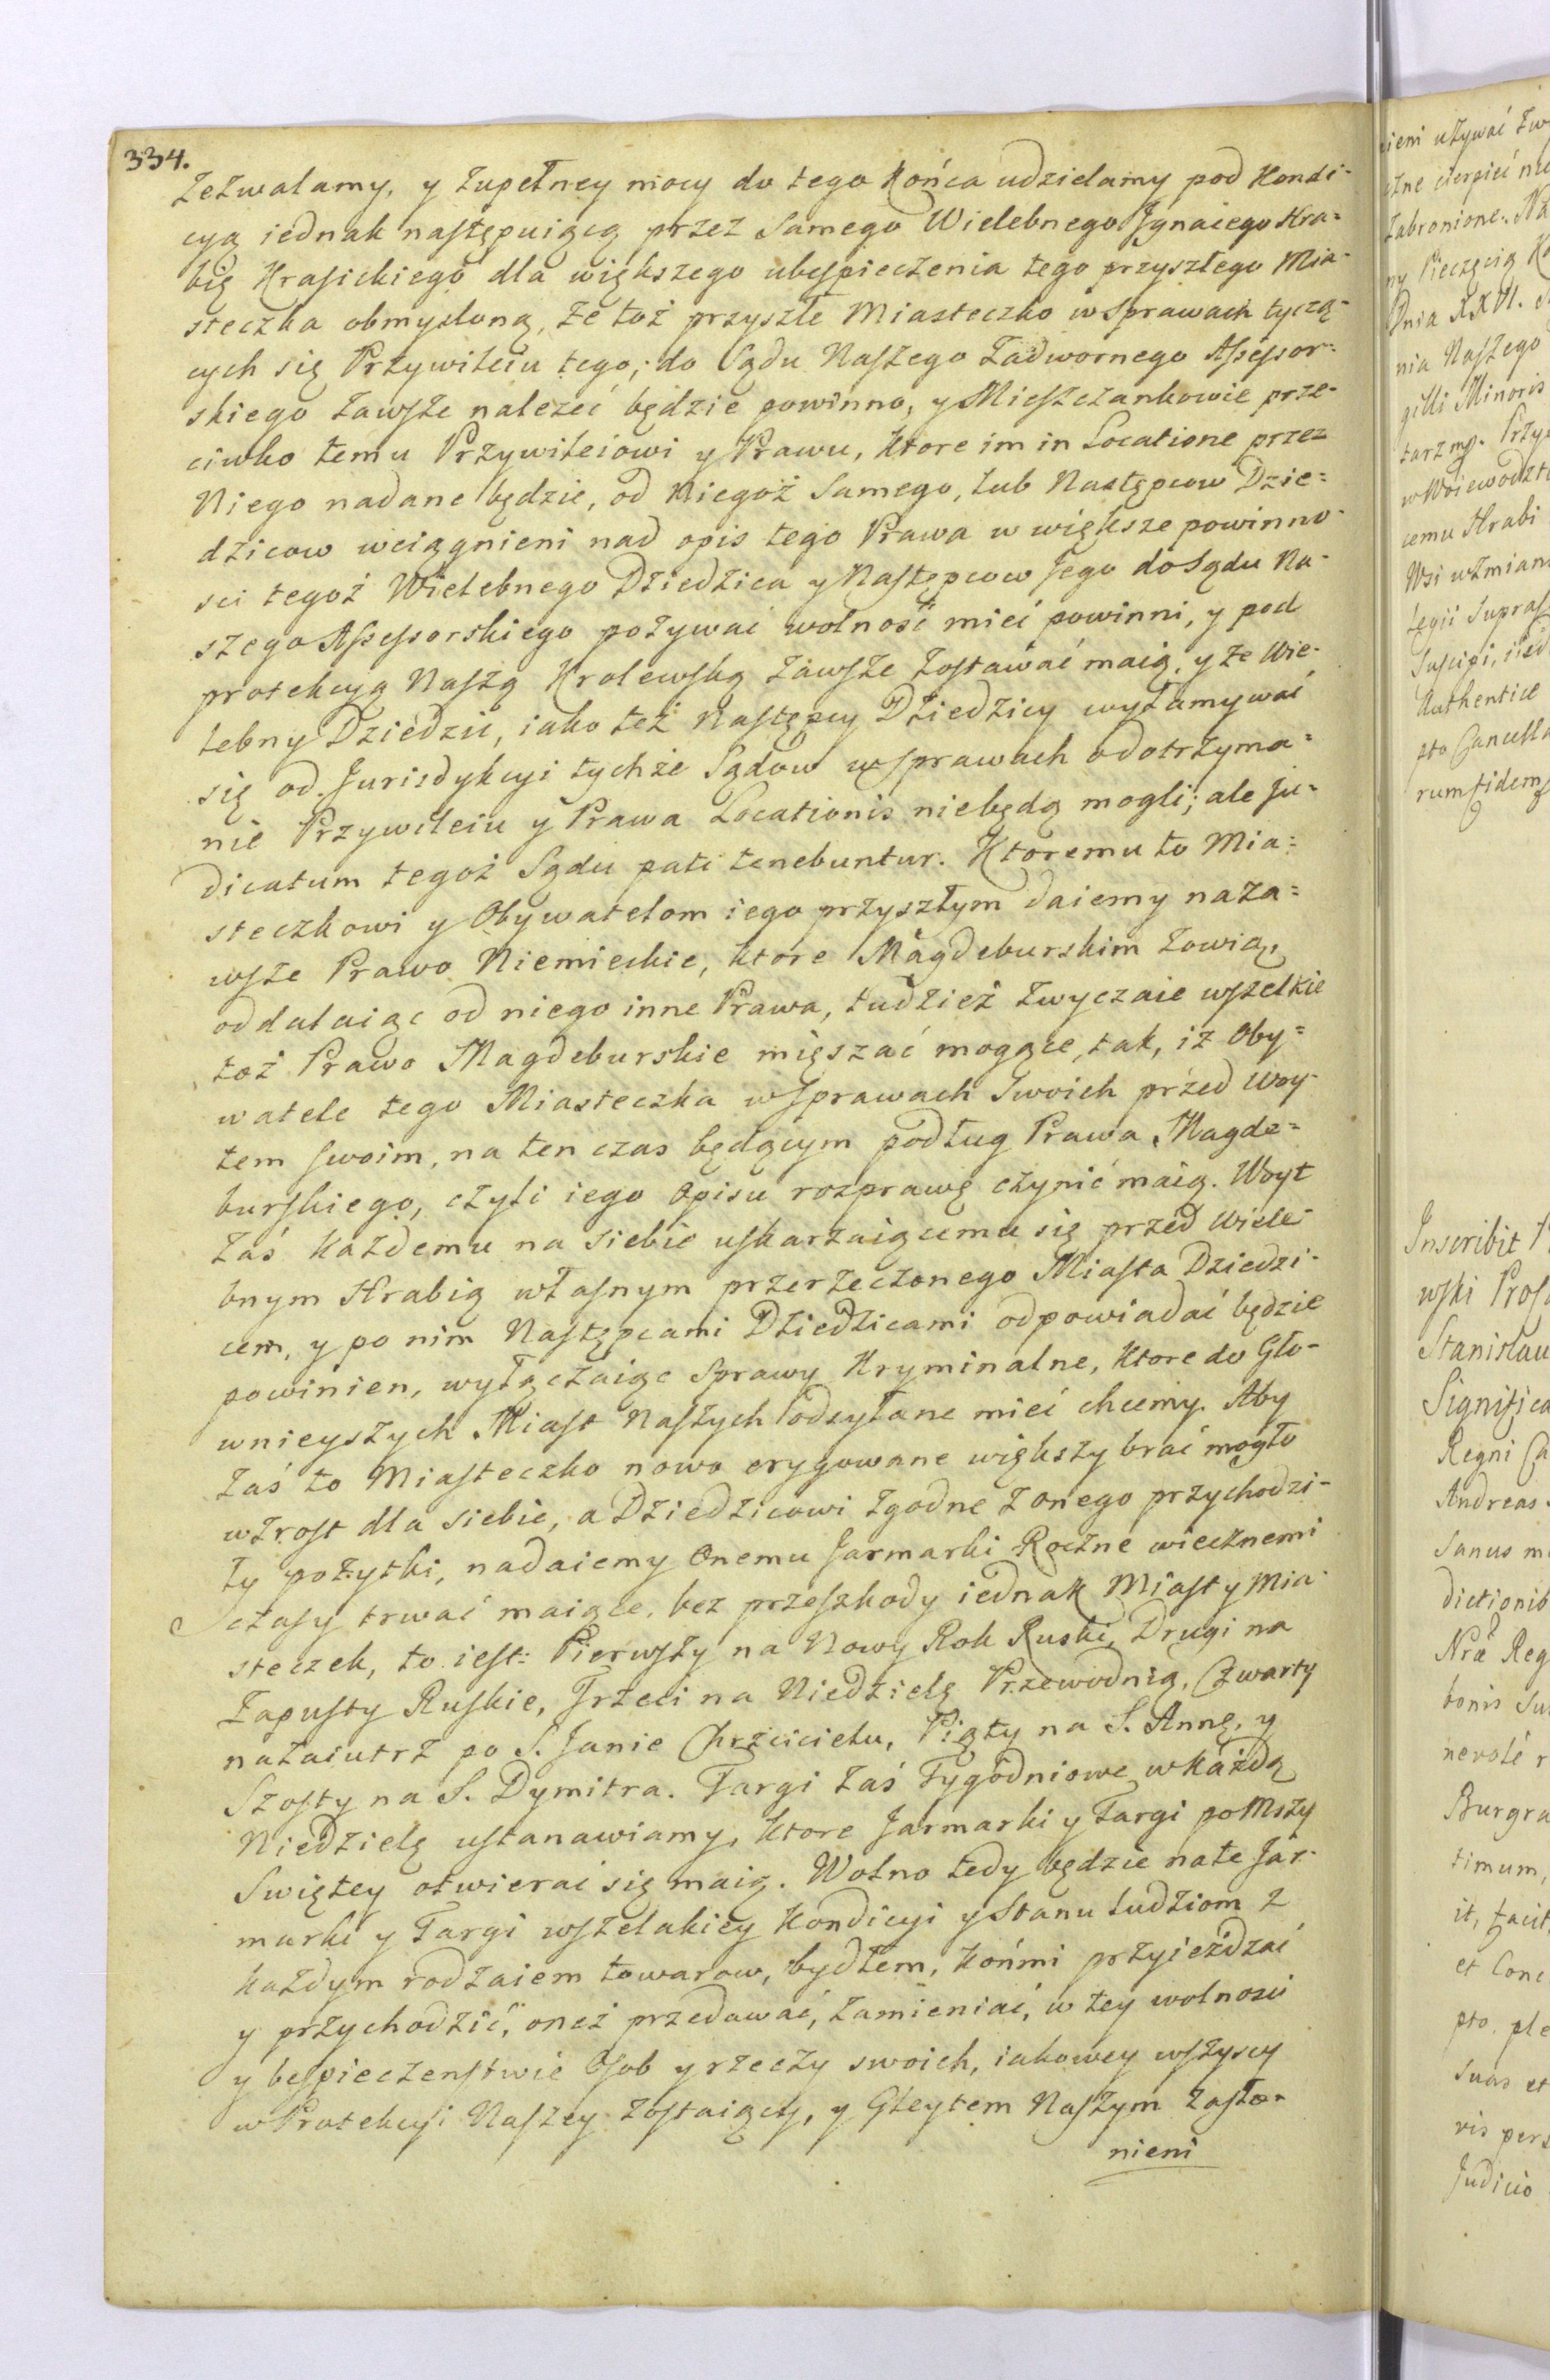 334.
Zezwalamy, y zupełney mocy do tego Końca udzielamy pod Kondi-
cyą iednak następuiącą przez Samego Wielebnego Jgnacego Hra=
bię Krasickiego dla większego ubespieczenia tego przyszłego Mia-
steczka obmysloną, że toż przyszłe Miasteczko w Sprawach tyczą-
cych się Przywileiu tego, do Sądu Naszego Zadwornego Assessor-
skiego zawsze nalezeć będzie powinno, y Mieszczankowie prze-
ciwko temu Przywileiowi y Prawu, ktore im in Locatione przez
Niego nadane będzie, od Niegoż Samego, lub Następcow Dzie=
dzicow wciągnieni nad opis tego Prawa w większe powinno-
sci tegoż Wielebnego Dziedzica y Następcow Jego do Sądu Na-
szego Assessorskiego pozywać wolność mieć powinni, y pod
protekcyą Naszą Krolewską zawsze zostawać maią, y że Wie-
lebny Dziedzic, iako też Następcy Dziedzicy wyłamywać
się od Jurisdykcyi tychże Sądow w sprawach o dotrzyma=
nie Przywileiu y Prawa Locationis niebędą mogli; ale Ju-
dicatum tegoż Sądu pati tenebuntur. Ktoremu to Mia=
steczkowi y Obywatelom iego przyszłym daiemy na za=
wsze Prawo Niemieckie, ktore Magdeburskim zowią,
oddalaiąc od niego inne Prawa, tudzież zwyczaie wszelkie
toż Prawo Magdeburskie mięszać mogące, tak, iż Oby=
watele tego Miasteczka w Sprawach Swoich przed Woy-
tem swoim, na ten czas będącym podług Prawa Magde=
burskiego, czyli iego Opisu rozprawę czynić maią. Woyt
zaś każdemu na siebie uskarzaiącemu się przed Wiele-
bnym Hrabią własnym przerzeczonego Miasta Dziedzi-
cem, y po nim Następcami Dziedzicami odpowiadać będzie
powinien, wyłączaiąc Sprawy Kryminalne, ktore do Gło-
wnieyszych Miast Naszych odsyłane mieć chcemy. Aby
zaś to Miasteczko nowo erygowane większy brać mogło
wzrost dla siebie, a Dziedzicowi zgodne z onego przychodzi-
ły pożytki, nadaiemy Onemu Jarmarki Roczne wiecznemi
czasy trwać maiące, bez przeszkody iednak Miast y Mia-
steczek, to iest: Pierwszy na Nowy Rok Ruski, Drugi na
Zapusty Ruskie, Trzeci na Niedzielę Przewodnią, Czwarty
nazaiutrz po S. Janie Chrzcicielu, Piąty na S. Annę, y
Szosty na S. Dymitra. Targi zaś Tygodniowe w każdą
Niedzielę ustanawiamy, ktore Jarmarki y Targi po Mszy
Swiętey otwierać się maią. Wolno tedy będzie na te Jar-
marki y Targi wszelakiey Kondicyi y Stanu ludziom z
każdym rodzaiem towarow, bydłem, końmi przyieżdzać
y przychodzić, oneż przedawać, zamieniać, w tey wolności
y bespieczenstwie Osob y rzeczy swoich, iakowey wszyscy
w Protekcyi Naszey zostaiący, y Gleytem Naszym zasło-
nieni
nieni używać
cierpieć
zabronione.
Pieczęcią
Dnia XXVI.
nia Naszego
Minoris
w Woiewodzt
cemu Hrabi
Wsi
Supras
Suscipi,
Authentice
pto Cancella
rum fidem
Inscribit
wski
Stanislau
Significa
Regni
Andreas
Sanus
dictionib
Nrae Reg
bonis
Burgra
timum,
it,
et
pto.
suas et
vis pers
Judicio